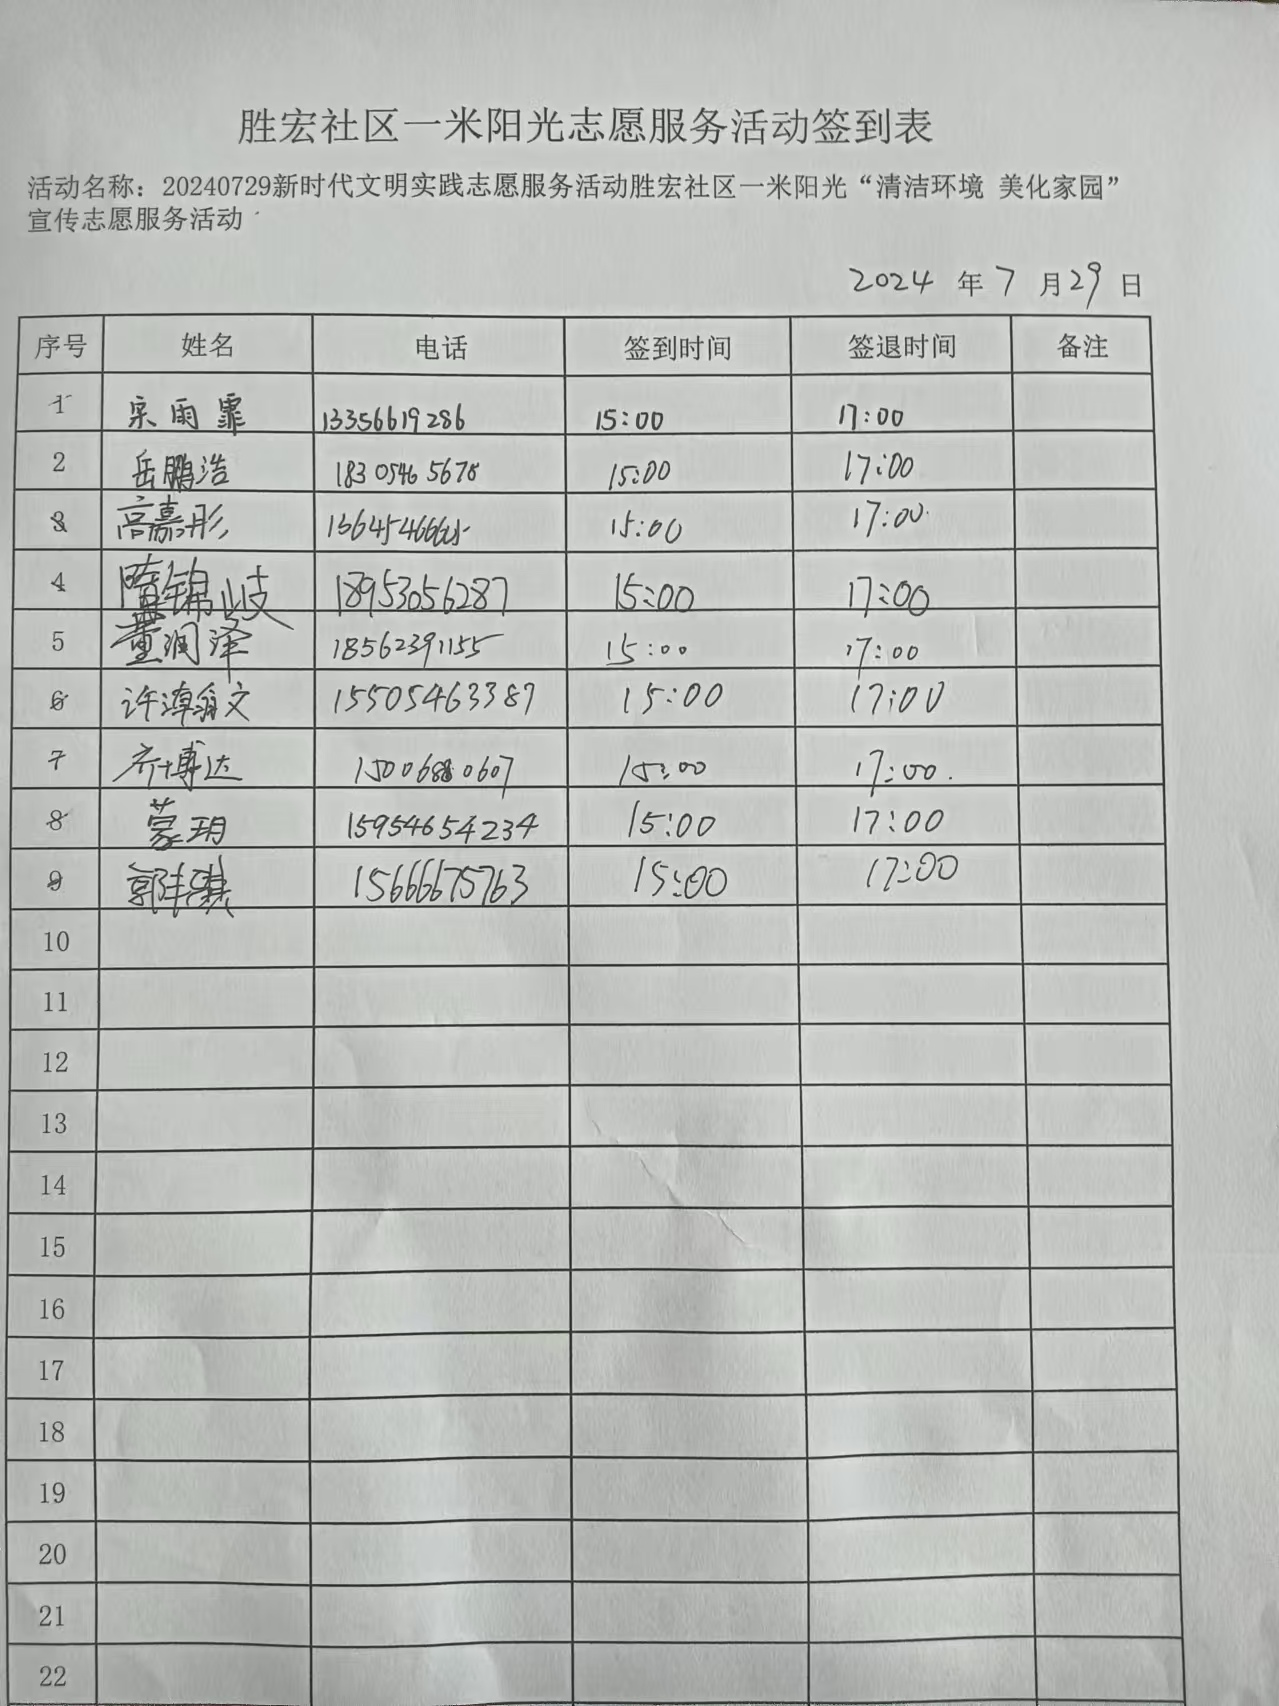 胜宏社区一米阳光志愿服务活动签到表
活动名称：20240729新时代文明实践志愿服务活动胜宏社区一米阳光“清洁环境 美化家园”
宣传志愿服务活动
2024 年 7 月 29 日
序号 姓名 电话 签到时间 签退时间 备注
1 宋雨霏 13356619286 15:00 17:00
2 岳鹏浩 18305465678 15:00 17:00
3 高嘉彤 15:00 17:00
4 隋锦岐 18953056287 15:00 17:00
5 董润泽 18562391155 15:00 17:00
6 许漳翕文 15505463387 15:00 17:00
7 齐博达 15006880607 15:00 17:00
8 蒙玥 15954654234 15:00 17:00
9 郭 15666675763 15:00 17:00
10
11
12
13
14
15
16
17
18
19
20
21
22